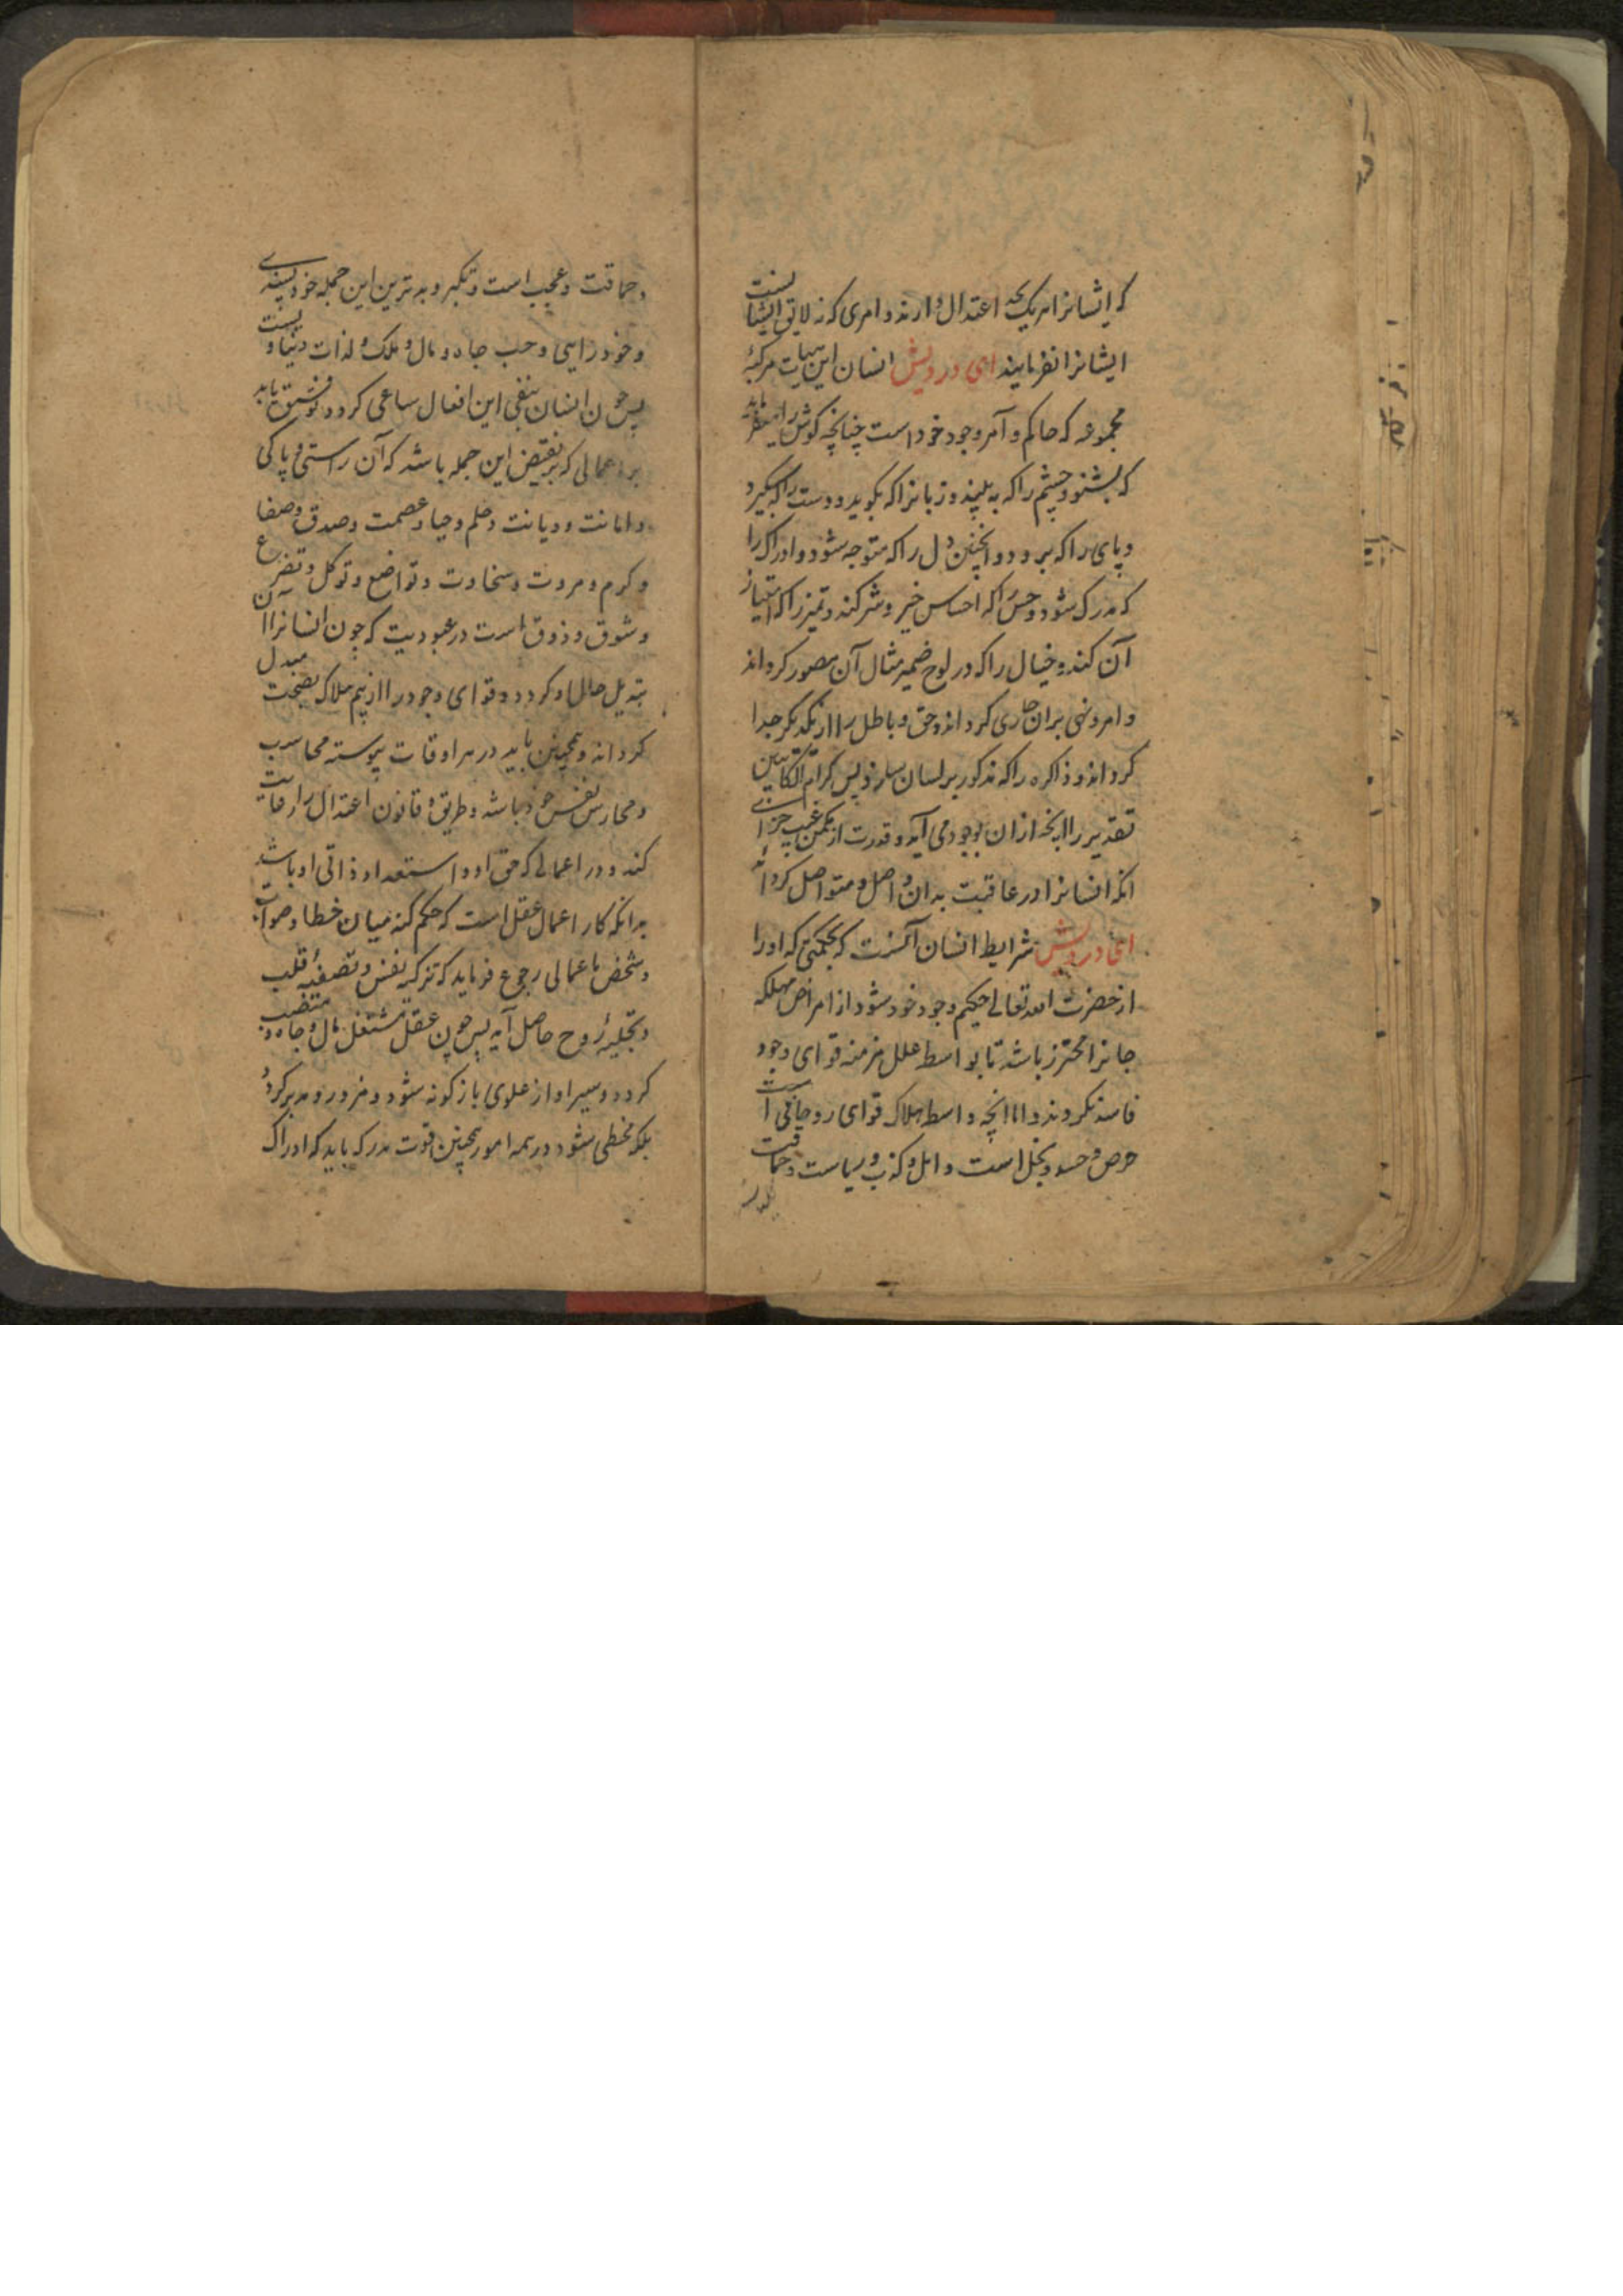 که ایشانرا هر یک بحد اعتدال دارند و امری که نه لایق ایشانست
ایشانرا نفرمایند ای درویش انسان این هیات مرکبهٔ
مجموعه که حاکم و آمر وجود خود است چنانچه کوش را میفرماید
که بشنو و چشم را که به بیند و زبانرا که بکوید و دست را که بگیرد
و پای را که برود و همچنین دل را که متوجه شود و ادراک را
که مدرک شود و حس را که احساس خیر و شر کند و تمیز را که امتیاز
آن کند و خیال را که در لوح ضمیر مثال آن مصور کرداند
و امر و نهی بران جاری کرداند و حق و باطل را از یکدیکر جدا
کرداند و ذاکره را که مذکور بر لسان پس کرام الکاتبین
تقدیر را انچه ازان بوجود می آید و قدرت از مکمن غیب جزای
انکه انسانرا در عاقبت بدان واصل و متواصل کرداند
ای درویش شرایط انسان آنست که بحکمتی که او را
از حضرت الله تعالی حکیم وجود خود شود از امراض مهلکه
جانرا محترز باشد تا بواسطه علل مزمنه قوای وجود
فاسد نکردند و اما انچه واسطه هلاک قوای روحانی است
حرص و حسد و بخل است و امل و کذب و سیاست و حماقت
و حماقت و عجب است و تکبر و بدترین این جمله خودپسندی
و خودرایی و حب جاه و مال و ملک و لذات دنیاویست
پس چون انسان بنفی این افعال ساعی کردد و موفق باید
براعمالی که بر نقیض این جمله باشد که آن راستی و پاکی
و امانت و دیانت و حلم و حیا و عصمت و صدق و صفا
و کرم و مروت و سخاوت و تواضع و توکل و تضرع
و شوق و ذوق است در عبودیت که چون انسانرا آن
تبدیل حال او کردد و قوای وجود را از بیم هلاک بصحت مبدل
کرداند و همچنین باید در هر اوقات پیوسته محاسب
و محارس نفس خود باشد و طریقهٔ قانون اعتدال را رعایت
کند و در اعمالی که حق او و استعداد ذاتی او باشد
بدانکه کار اعمال عقل است که حکم کند میان خطا و صواب
و شخص باعمالی رجوع فرماید که تزکیه نفس و تصفیهٔ قلب
و تجلیهٔ روح حاصل آید پس چون عقل مشتغل بمال و جاه و منصب
کردد و سیر او از علوی بازکونه شود و مزور و مدبر کردد
بلکه مخطی شود در همه امور همچنین قوت مدرکه باید که ادراک